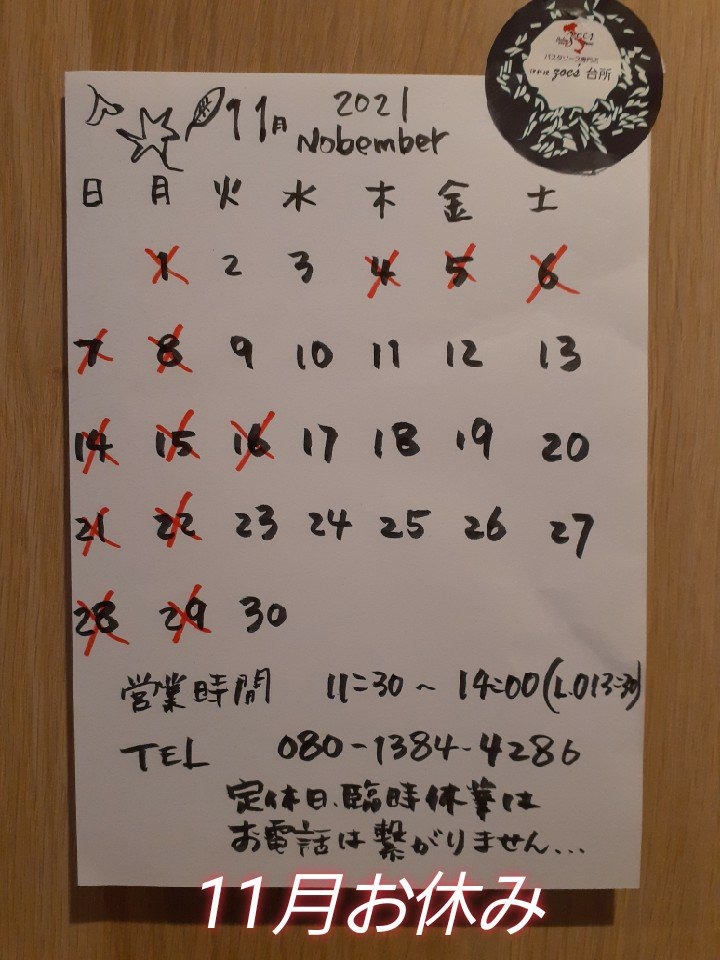 パスタソース専門店
zoe's 台所
2021
11月 Nobember
日 月 火 水 木 金 土
1 2 3 4 5 6
7 8 9 10 11 12 13
14 15 16 17 18 19 20
21 22 23 24 25 26 27
28 29 30
営業時間 11:30~14:00(L.O13:30)
TEL 080-1384-4286
定休日、臨時休業は
お電話は繋がりません...
11月お休み